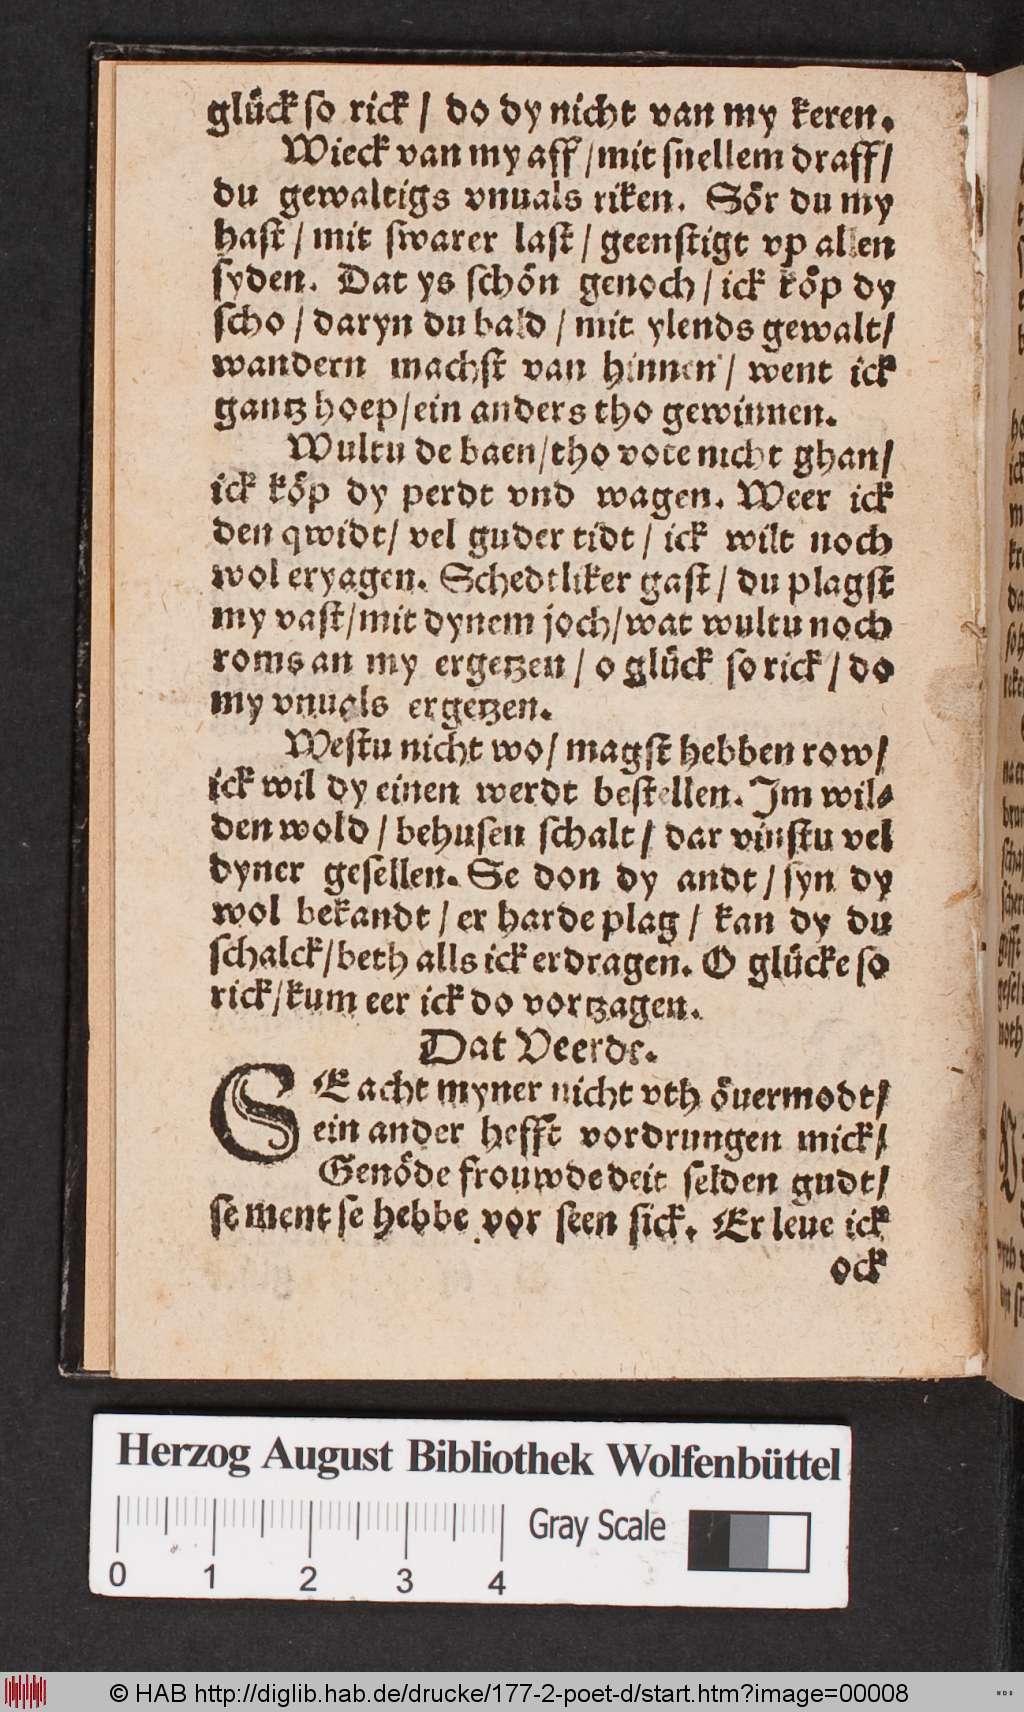 glück so rick / do dy nicht van my keren.
Wieck van my aff / mit snellem draff /
du gewaltigs vnuals riken. Sör du my
hast / mit swarer last / geenstigt vp allen
syden. Dat ys schön genoch / ick köp dy
scho / daryn du bald / mit ylends gewalt /
wandern machst van hinnen / went ick
gantz hoep / ein anders tho gewinnen.
Wultu de baen / tho vote nicht ghan /
ick köp dy perdt vnd wagen. Weer ick
den qwidt / vel guder tidt / ick wilt noch
wol eryagen. Schedtliker gast / du plagst
my vast / mit dynem joch / wat wultu noch
roms an my ergetzen / o glück so rick / do
my vnuals ergetzen.
Westu nicht wo / magst hebben row /
ick wil dy einen werdt bestellen. Im wil⸗
den wold / behusen schalt / dar vinstu vel
dyner gesellen. Se don dy andt / syn dy
wol bekandt / er harde plag / kan dy du
schalck / beth alls ick erdragen. O glücke so
rick / kum eer ick do vortzagen.
Dat Veerde.
SE acht myner nicht vth övermodt /
ein ander hefft vordrungen mick /
Genöde frouwde deit selden gudt /
se ment se hebbe vor seen sick. Er leue ick
ock
Herzog August Bibliothek Wolfenbüttel
Gray Scale
0 1 2 3 4
© HAB http://diglib.hab.de/drucke/177-2-poet-d/start.htm?image=00008